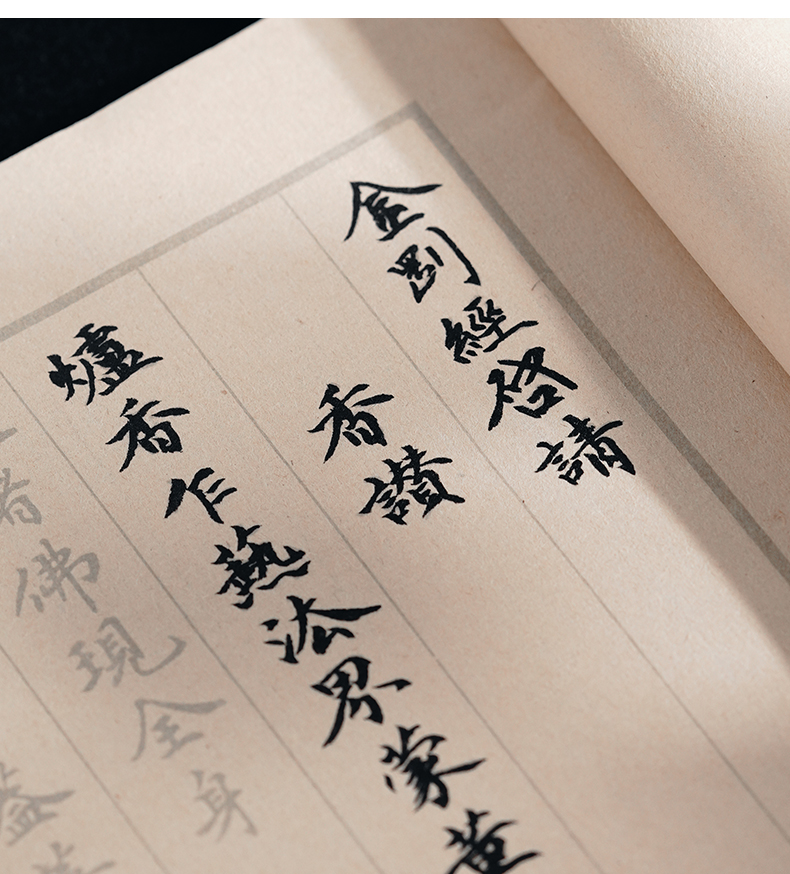 金剛經啓請
香讚
爐香乍爇法界蒙薰
佛現全身